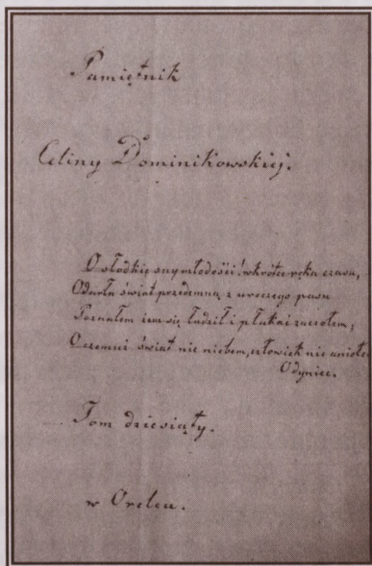 Pamiętnik
Celiny Dominikowskiej.
O słodkie sny młodości! wkrótce ręka czasu,
Odarła świat przedemną z uroczego pasu
Poznałem żem się łudził i płakać zacząłem,
O czemuż świat nie niebem, człowiek nie aniołem
Odyniec.
Tom dziesiąty.
w Orelca.